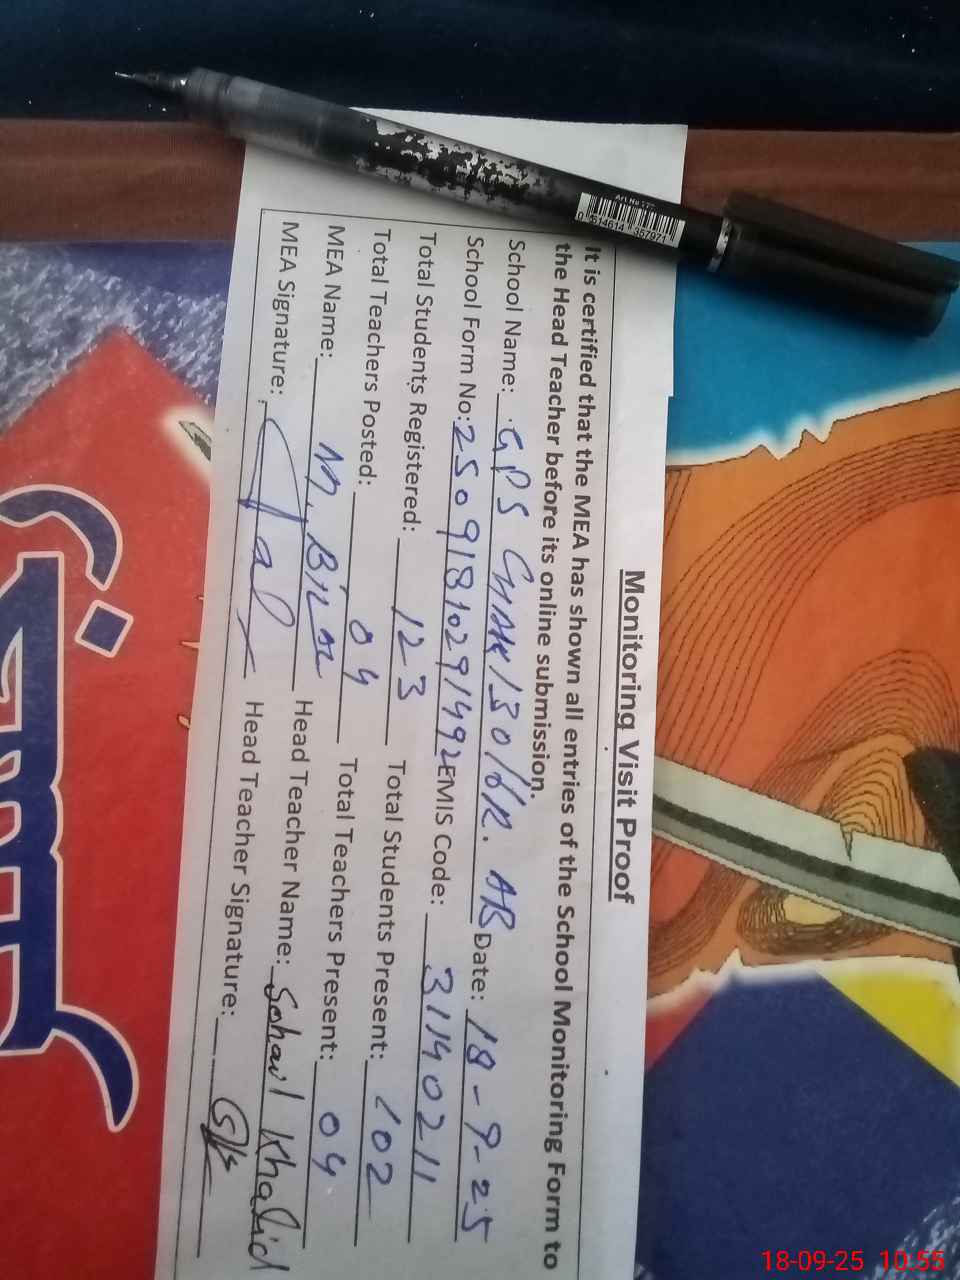 Monitoring Visit Proof
It is certified that the MEA has shown all entries of the School Monitoring Form to
the Head Teacher before its online submission.
School Name: GPS CHAK 130/6R. AB Date: 18-9-25
School Form No: 25091810291492 EMIS Code: 31140211
Total Students Registered: 123 Total Students Present: 102
Total Teachers Posted: 04 Total Teachers Present: 04
MEA Name: M. Bilal Head Teacher Name: Sohail Khalid
MEA Signature: Head Teacher Signature:
Art No
0 514614 357971
18-09-25 10:55